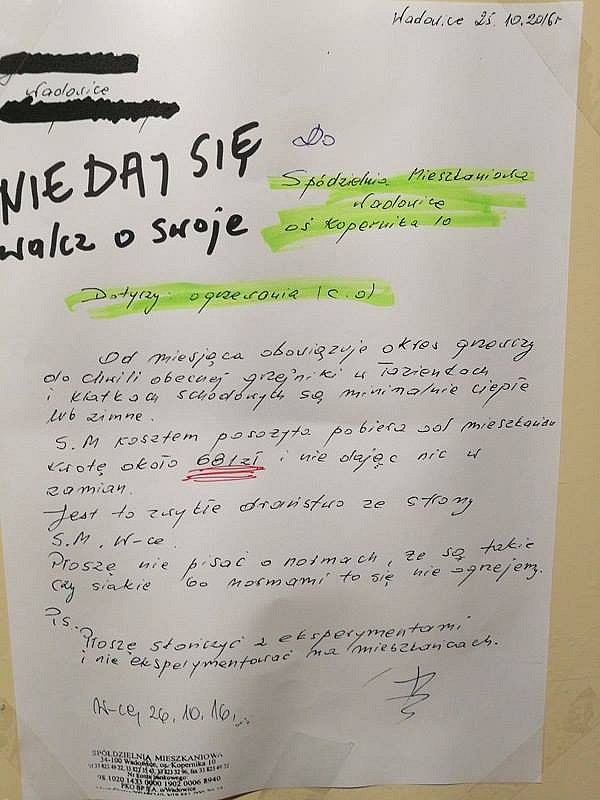 Wadowice 25.10.2016r
Wadowice
NIE DAJ SIĘ
walcz o swoje
Do
Spódzielnia Mieszkaniowa
Wadowice
oś Kopernika 10
Dotyczy: ogrzewania (c.o)
Od miesjąca obowiązuje okres grzewczy
do chwili obecnej grzejniki w łazienkach
i klatkach schodowych są minimalnie ciepłe
lub zimne.
S.M kosztem pasożyta pobiera od mieszkania
kwotę około 68 zł i nie dając nic w
zamian.
Jest to zwykłe draństwo ze strony
S.M. W-ce.
Proszę nie pisać o normach, że są takie
czy siakie bo normami to się nie ogrzejemy.
Ps.
Proszę skończyć z eksperymentami
i nie eksperymentować na mieszkańcach.
W-ce, 26.10.16
SPÓŁDZIELNIA MIESZKANIOWA
34-100 Wadowice, os. Kopernika 10
Nr konta bankowego
98 1020 1433 0000 1902 0006 8940
PKO BP S.A. o/Wadowice